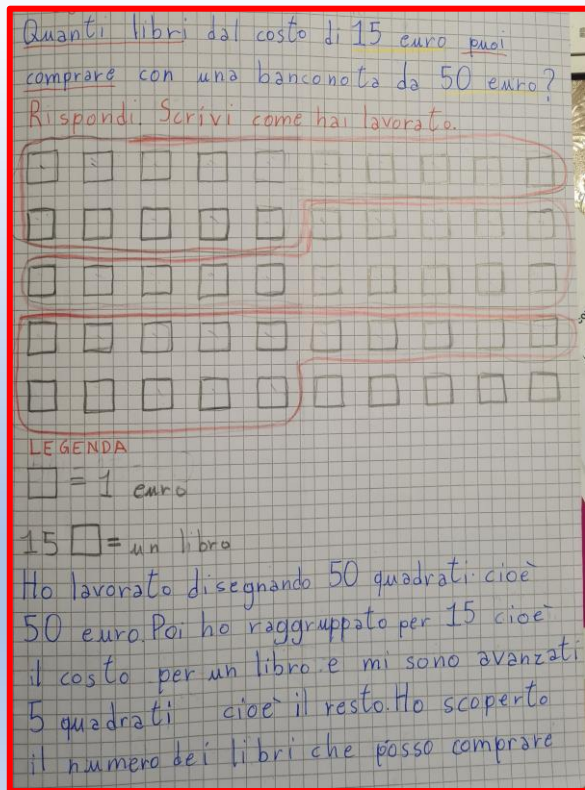 Quanti libri dal costo di 15 euro puoi
comprare con una banconota da 50 euro?
Rispondi. Scrivi come hai lavorato.
LEGENDA
□ = 1 euro
15 □ = un libro
Ho lavorato disegnando 50 quadrati cioè
50 euro. Poi ho raggruppato per 15 cioè
il costo per un libro e mi sono avanzati
5 quadrati cioè il resto. Ho scoperto
il numero dei libri che posso comprare